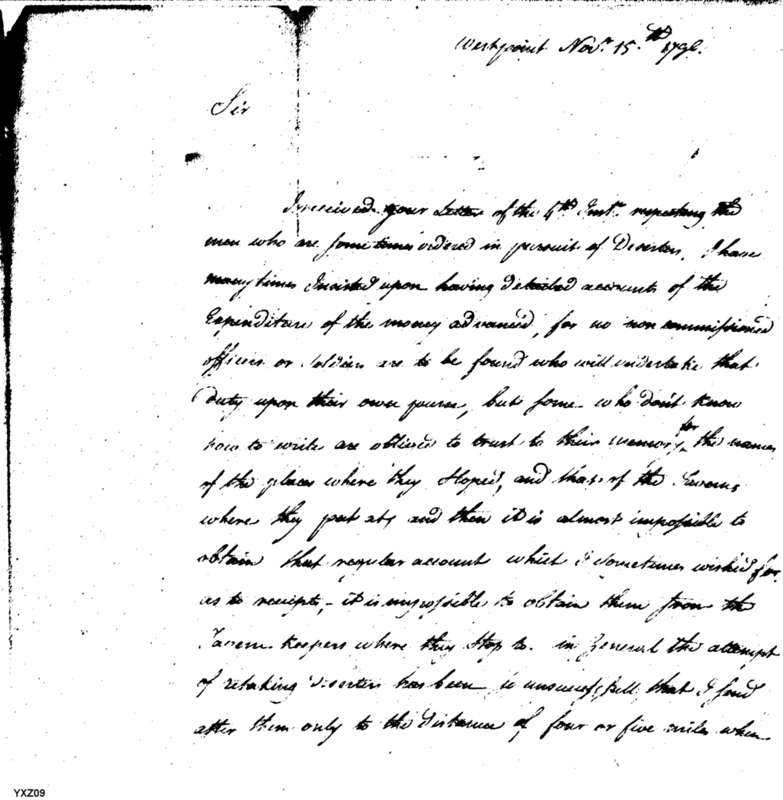 Westpoint Novr. 15th 1796.
Sir
I received your Letter of the 4th Inst. respecting the
men who are sometimes ordered in pursuit of Deserters. I have
many times Insisted upon having detailed accounts of the
Expenditure of the money advanced, for no non commissioned
officers or soldiers are to be found who will undertake that
duty upon their own purse, but some who don't know
how to write are obliged to trust to their memory for the names
of the places where they stoped, and that of the Taverns
where they put at, and then it is almost impossible to
obtain that regular account which I sometimes wished for
as to receipts, - it is impossible to obtain them from the
Tavern Keepers where they stop to. in General the attempt
of retaking deserters has been so unsuccessfull that I send
after them only to the distance of four or five miles when
YXZ09